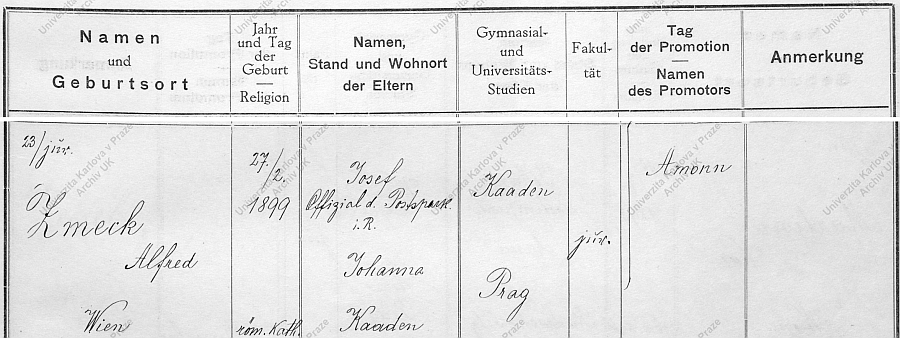 Namen
und
Geburtsort
Jahr
und Tag
der
Geburt
Religion
Namen,
Stand und Wohnort
der Eltern
Gymnasial-
und
Universitäts-
Studien
Fakul-
tät
Tag
der Promotion
Namen
des Promotors
Anmerkung
23/jur.
Zmeck
Alfred
Wien
27./2.
1899
röm. Kath.
Josef
Offizial d. Postspark.
i. R.
Johanna
Kaaden
Kaaden
Prag
jur.
Amonn
Univerzita Karlova v Praze
Archiv UK